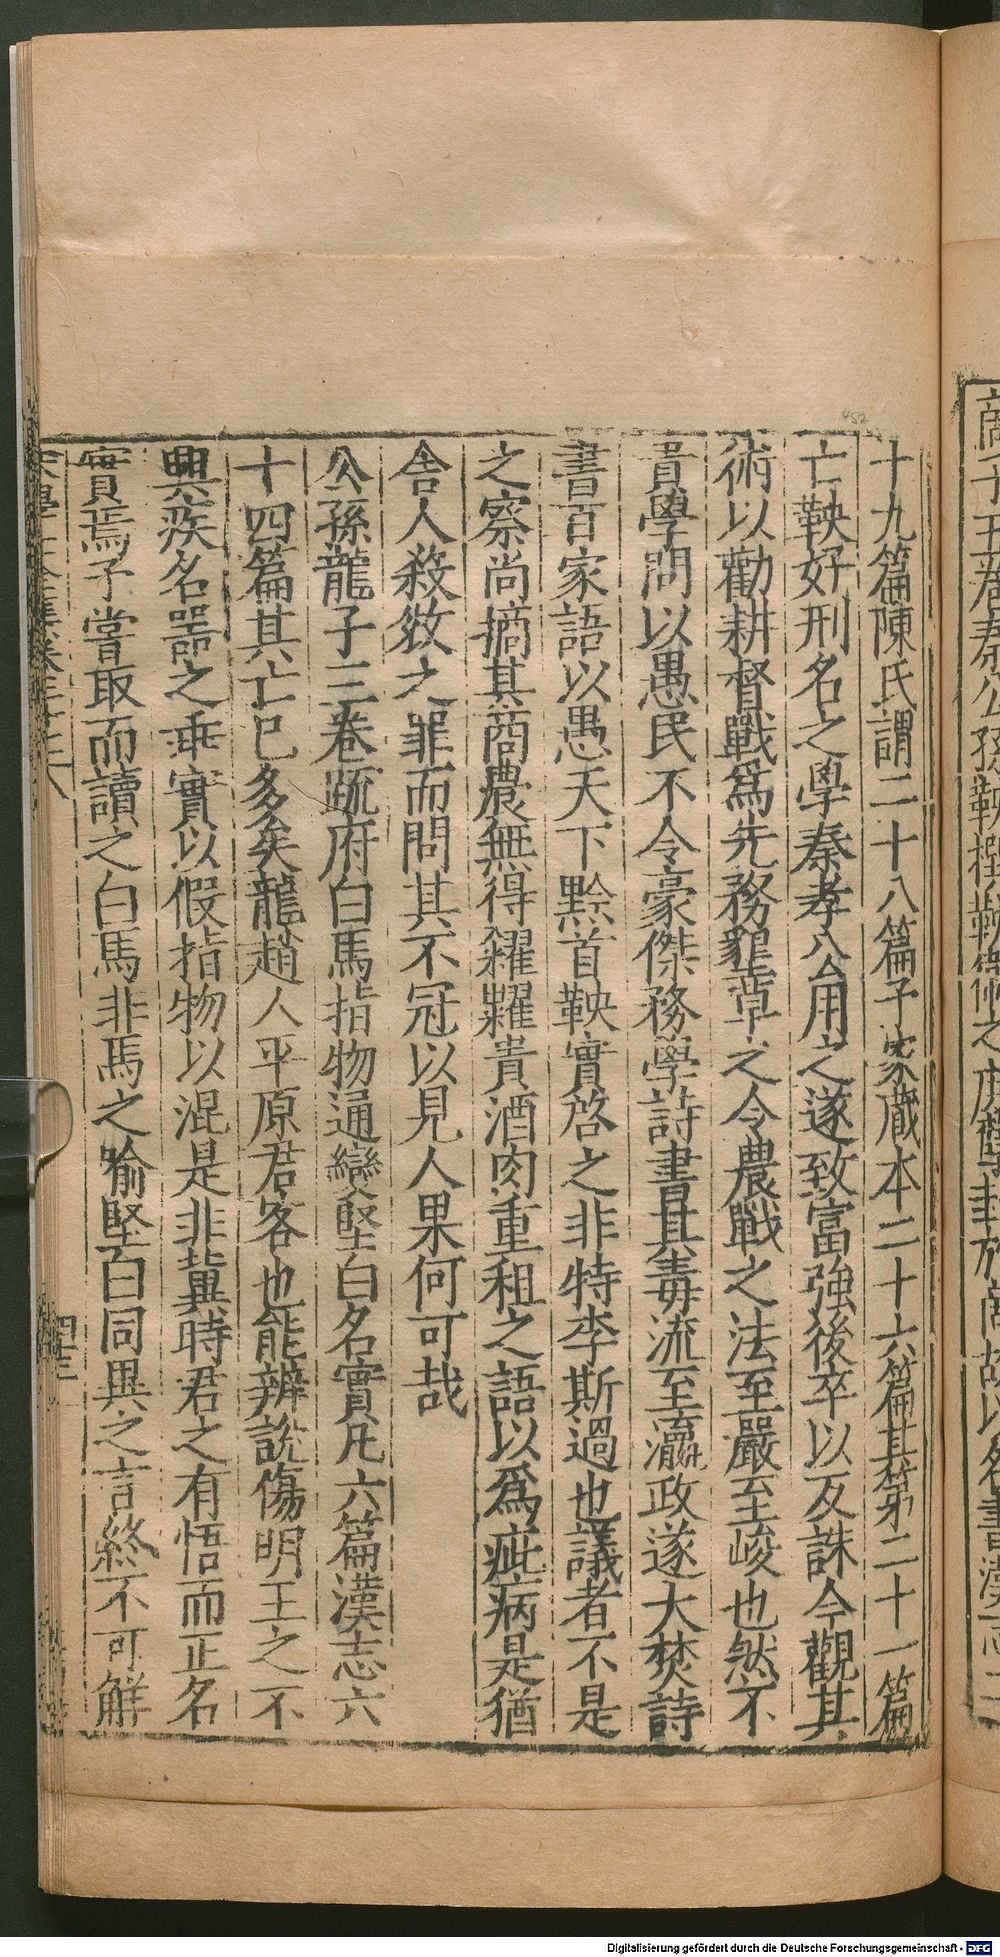 商子五卷秦公孫鞅撰鞅衛之庶孽封於商故以名書漢志二
十九篇陳氏謂二十八篇予家藏本二十六篇其第二十一篇
亡鞅好刑名之學秦孝公用之遂致富強後卒以反誅今觀其
術以勸耕督戰為先務墾草之令農戰之法至嚴至峻也然不
貴學問以愚民不令豪傑務學詩書其毒流至瀛政遂大焚詩
書百家語以愚天下黔首鞅實啓之非特李斯過也議者不是
之察尚摘其商農無得糴糶貴酒肉重租之語以為疵病是猶
舍人殺敓之罪而問其不冠以見人果何可哉
公孫龍子三卷疏府白馬指物通變堅白名實凡六篇漢志六
十四篇其亡已多矣龍趙人平原君客也能辨說傷明王之不
興疾名器之乖實以假指物以混是非冀時君之有悟而正名
實焉予嘗取而讀之白馬非馬之喻堅白同異之言終不可解
宋學士全集卷三十八
四十三
452
Digitalisierung gefördert durch die Deutsche Forschungsgemeinschaft - DFG